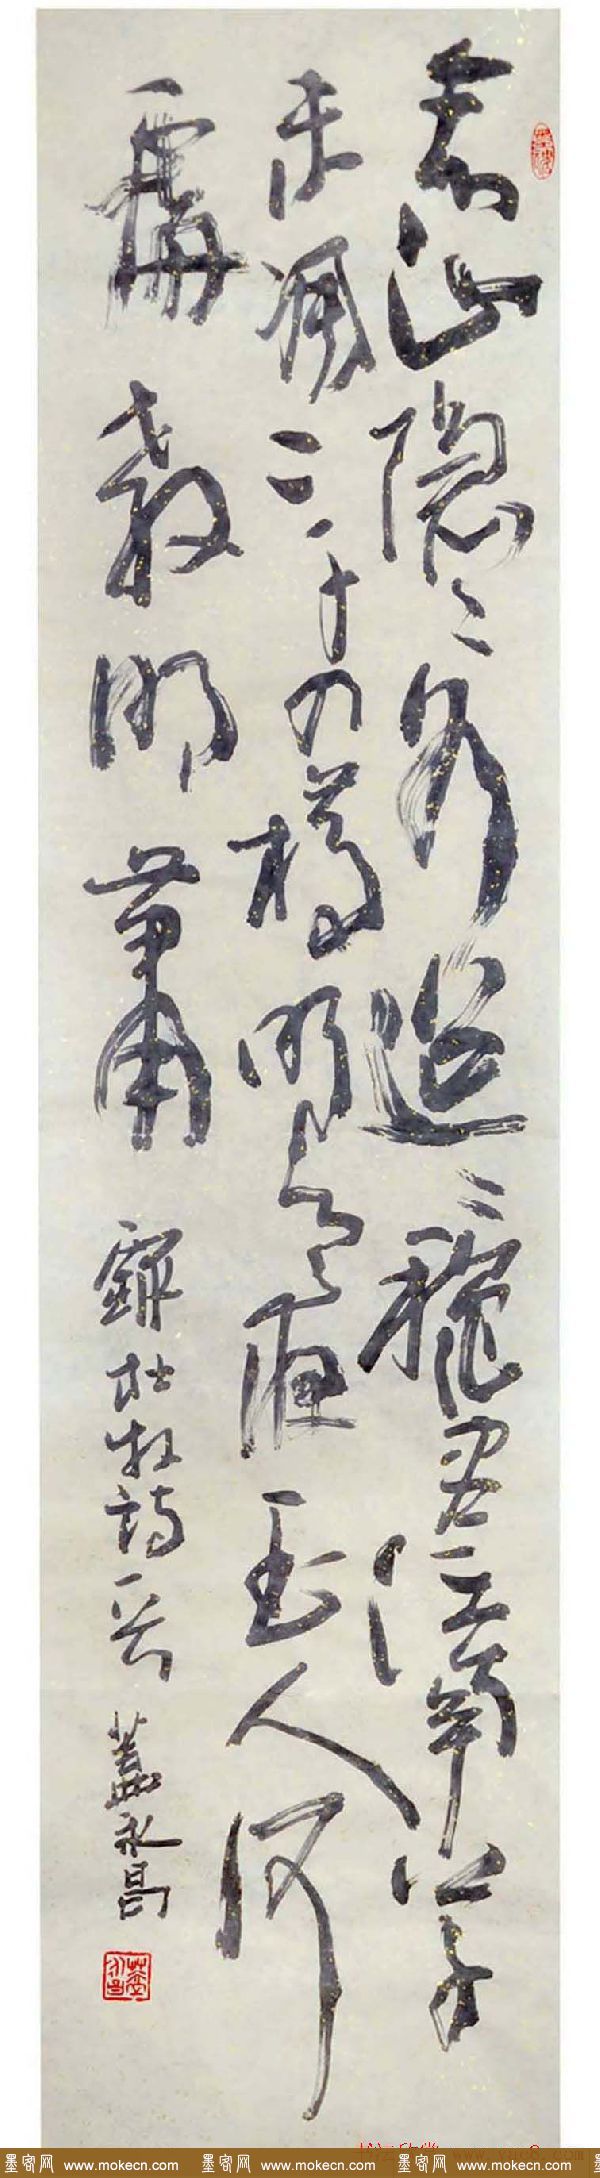 青山隐〻水迢〻秋盡江南草
未凋二十四橋明月夜玉人何
處教吹簫
錄杜牧詩一首
蓋永昌
墨客网 www.mokecn.com 墨客网 www.mokecn.com 墨客网 www.mokecn.com